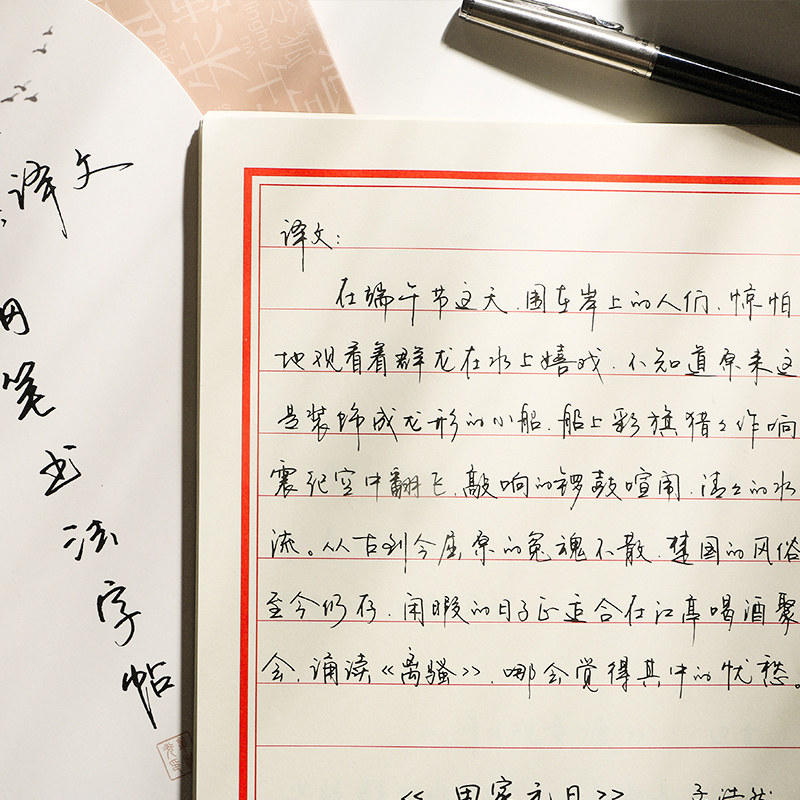 译文
用
笔
书
法
字
帖
译文：
在端午节这天，围在岸上的人们，惊怕
地观看着群龙在水上嬉戏，不知道原来这
是装饰成龙形的小船，船上彩旗猎々作响
震纪空中翻飞，敲响的锣鼓喧闹，清々的水
流。从古到今屈原的冤魂不散，楚国的风俗
至今仍存，闲暇的日子正适合在江亭喝酒聚
会，诵读《离骚》，哪会觉得其中的忧愁。
《田家元日》 孟浩然